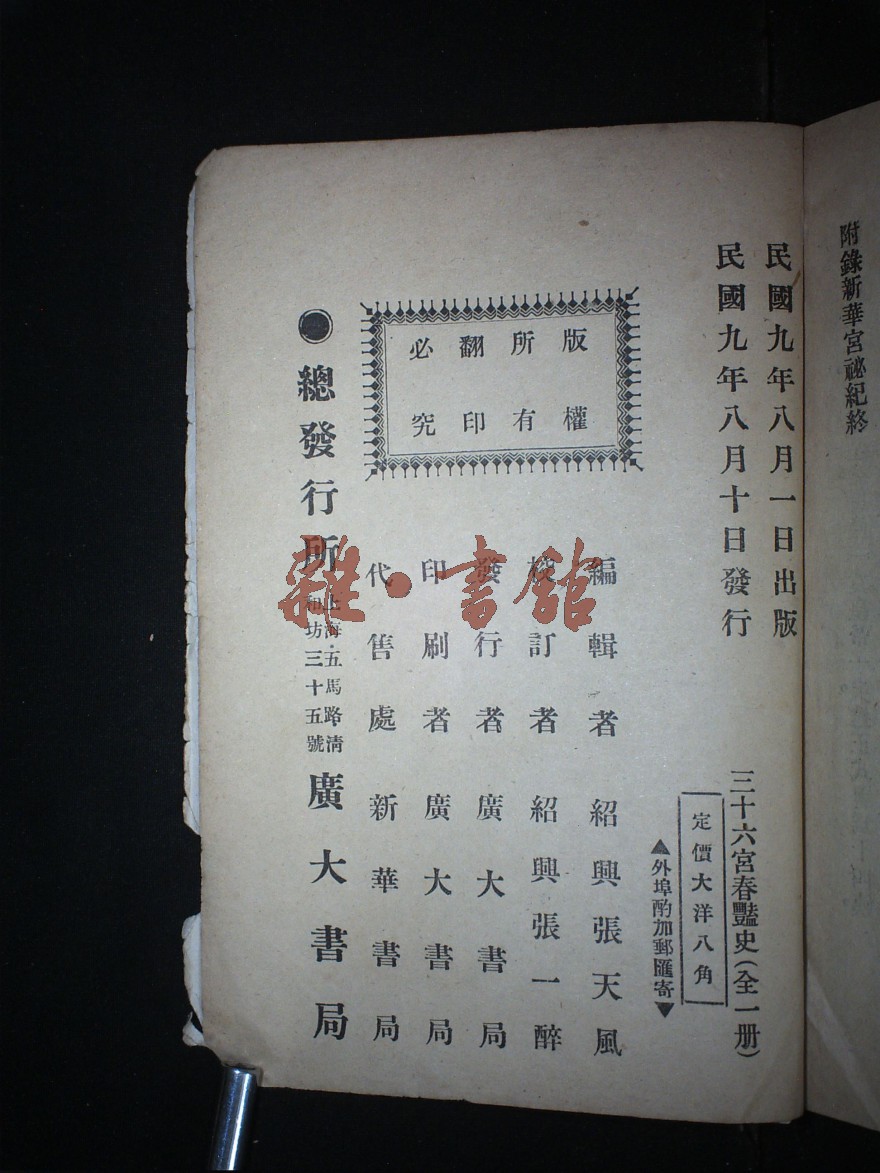 附錄新華宮祕紀終
民國九年八月一日出版
民國九年八月十日發行
三十六宮春豔史(全一册)
定價大洋八角
▲外埠酌加郵匯寄▼
版權
所有
翻印
必究
編輯者紹興張天風
校訂者紹興張一醉
發行者廣大書局
印刷者廣大書局
代售處新華書局
●總發行所
上海五馬路清
和坊三十五號
廣大書局
雜·書館